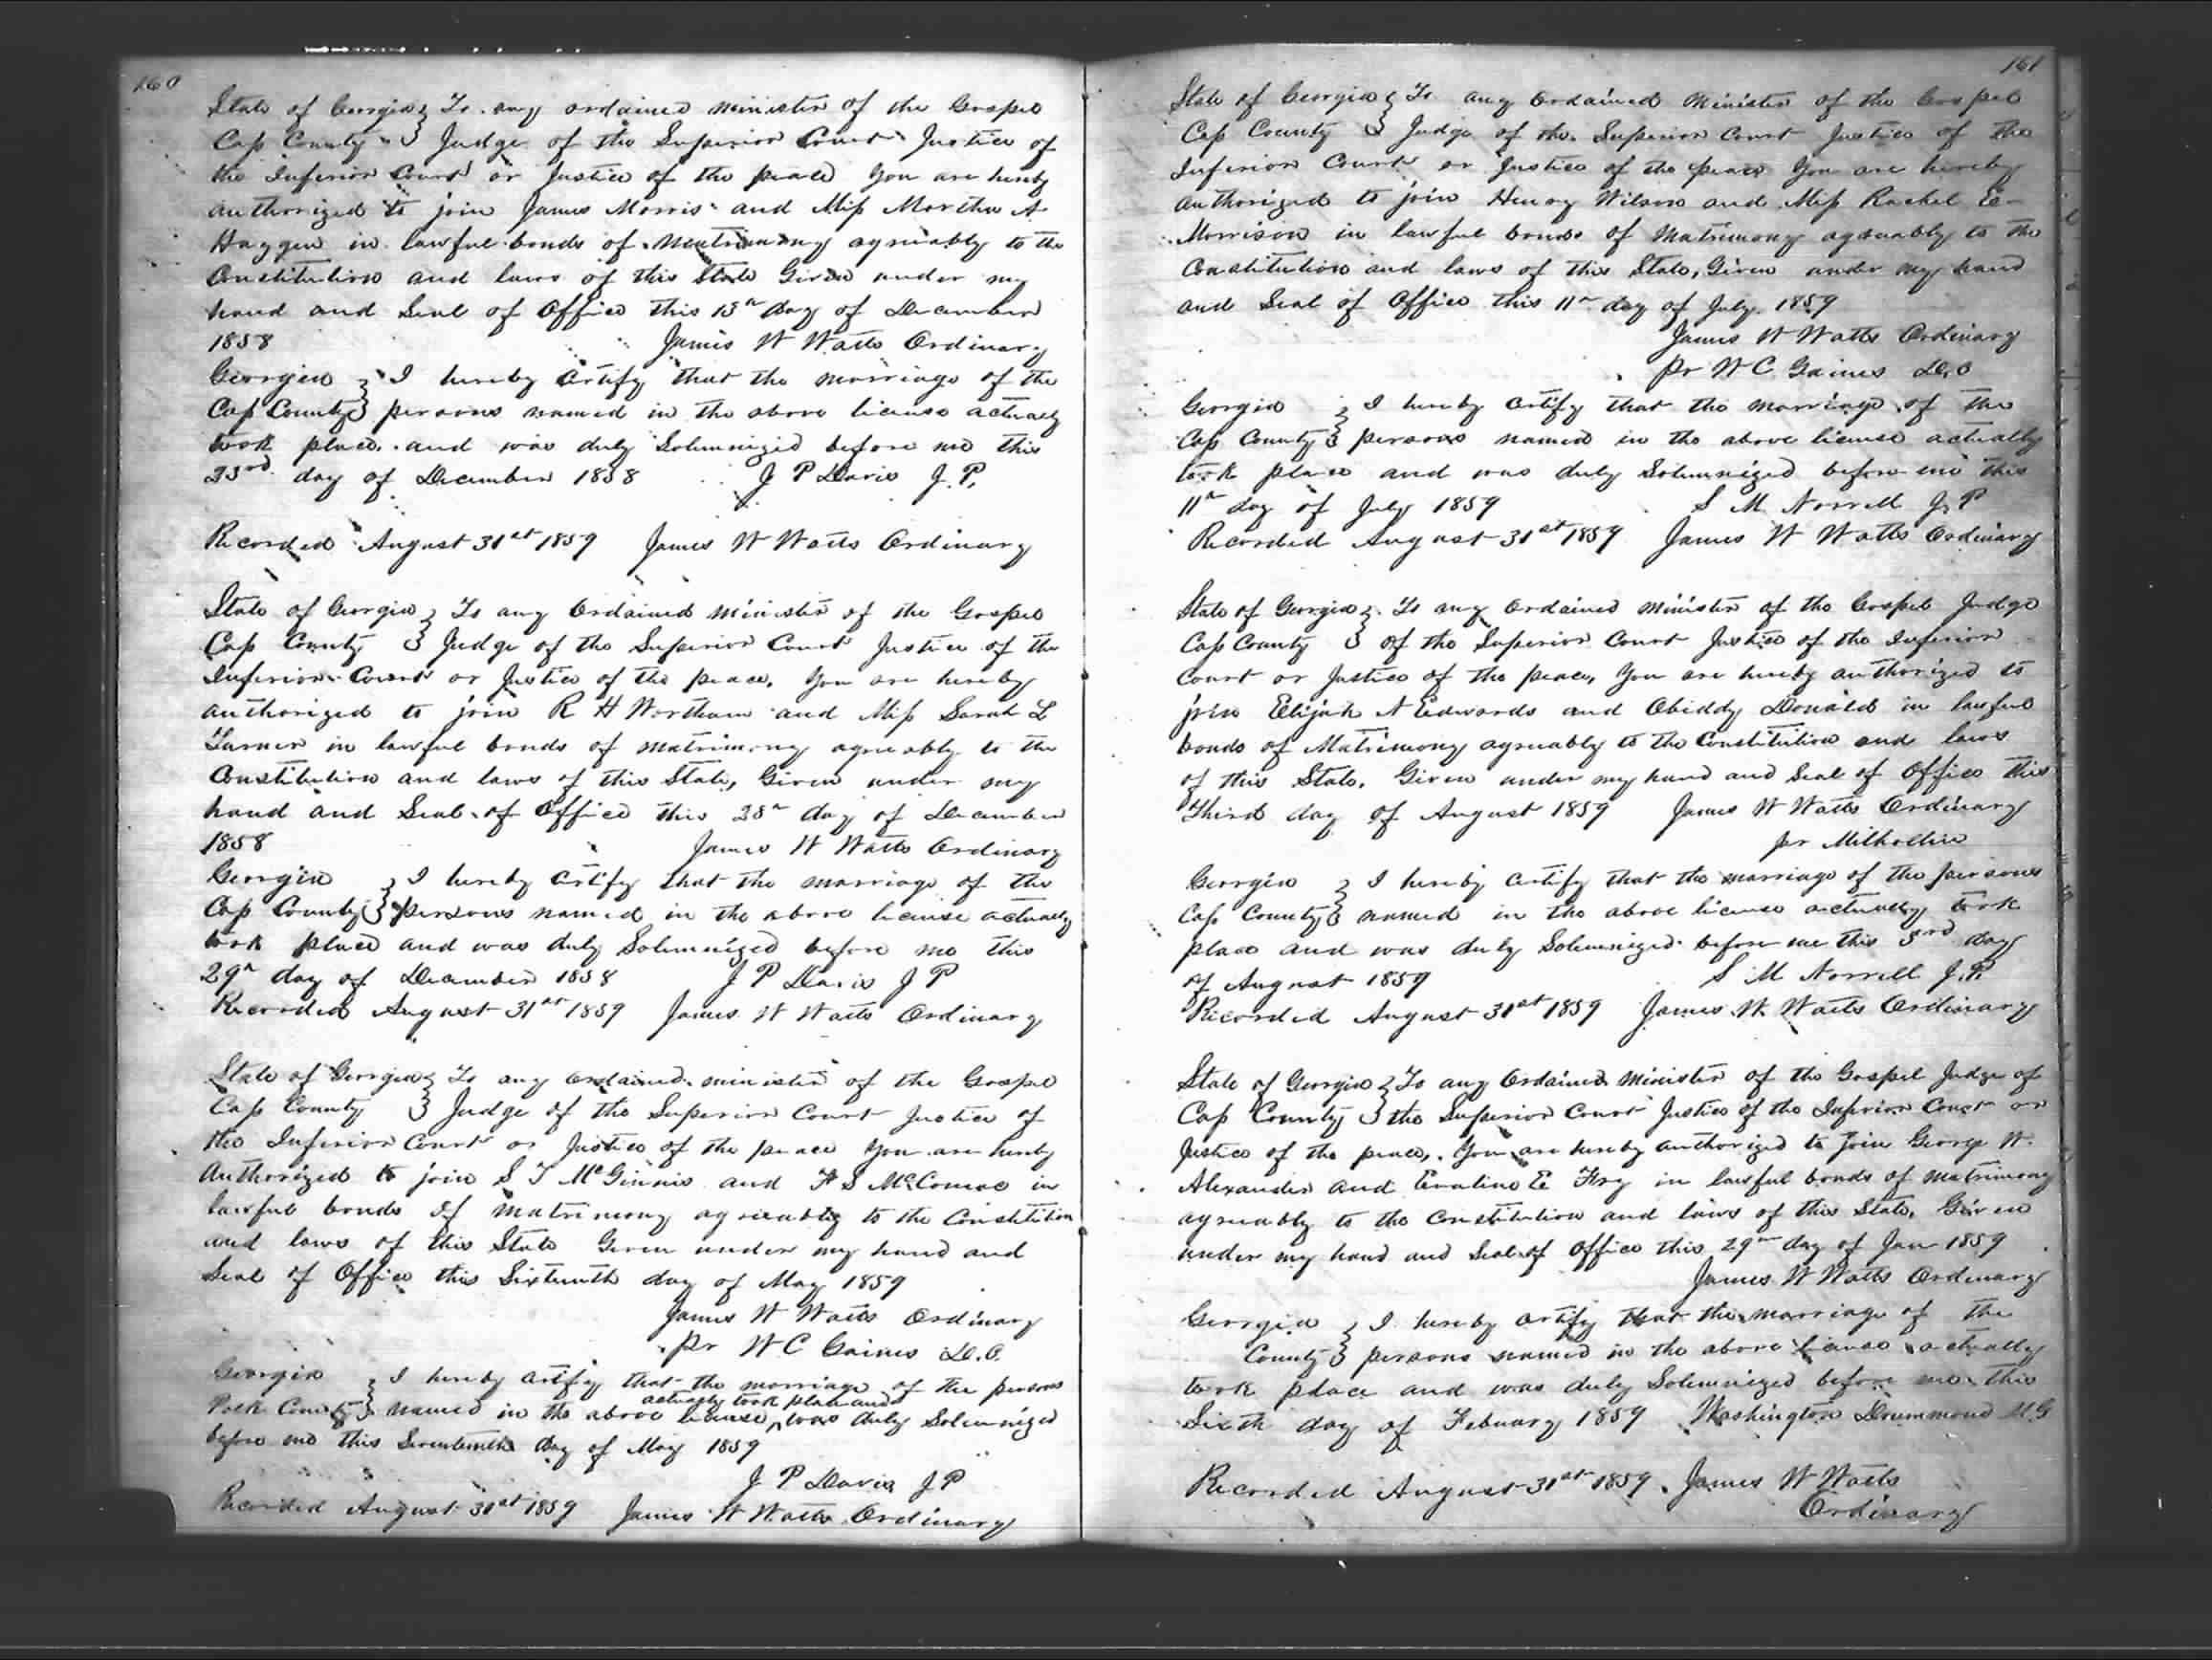 160
State of Georgia } To any ordained minister of the Gospel
Cass County } Judge of the Superior Court Justice of
the Inferior Court or Justice of the peace You are hereby
authorized to join James Morris and Miss Martha A
in lawful bonds of matrimony agreeably to the
Constitution and laws of this State Given under my
hand and Seal of Office this day of December
1858 James W Watts Ordinary
Georgia } I hereby Certify that the marriage of the
Cass County } persons named in the above license actually
took place and was duly Solemnized before me this
23rd day of December 1858 J P Davis J. P.
Recorded August 31st 1859 James W Watts Ordinary
State of Georgia } To any Ordained minister of the Gospel
Cass County } Judge of the Superior Court Justice of the
Inferior Court or Justice of the peace, You are hereby
authorized to join R H Wortham and Miss Sarah L
Turner in lawful bonds of matrimony agreeably to the
Constitution and laws of this State, Given under my
hand and Seal of Office this 28th day of December
1858 James W Watts Ordinary
Georgia } I hereby Certify that the marriage of the
Cass County } persons named in the above license actually
took place and was duly Solemnized before me this
29th day of December 1858 J P Davis J P
Recorded August 31st 1859 James W Watts Ordinary
State of Georgia } To any Ordained minister of the Gospel
Cass County } Judge of the Superior Court Justice of
the Inferior Court or Justice of the peace You are hereby
Authorized to join S T McGinnis and S in
lawful bonds of matrimony agreeably to the Constitution
and laws of this State Given under my hand and
Seal of Office this Sixteenth day of May 1859
James W Watts Ordinary
Pr W C Gaines D.O.
Georgia } I hereby Certify that the marriage of the persons
Polk County } named in the above license, actually took place and was duly Solemnized
before me this Seventeenth day of May 1859
J P Davis J P
Recorded August 31st 1859 James W Watts Ordinary
161
State of Georgia } To any Ordained Minister of the Gospel
Cass County } Judge of the Superior Court Justice of the
Inferior Court or Justice of the peace You are hereby
authorized to join Henry Wilson and Miss Rachel E
Morrison in lawful bonds of Matrimony agreeably to the
Constitution and laws of this State, Given under my hand
and Seal of Office this 11th day of July 1859
James W Watts Ordinary
Pr W C Gaines D.O
Georgia } I hereby Certify that the marriage of the
Cass County } persons named in the above license actually
took place and was duly Solemnized before me this
11th day of July 1859 S M Norrell J. P
Recorded August 31st 1859 James W Watts Ordinary
State of Georgia } To any Ordained Minister of the Gospel Judge
Cass County } of the Superior Court Justice of the Inferior
Court or Justice of the peace, You are hereby authorized to
join Elijah N Edwards and Obiddy Donald in lawful
bonds of Matrimony agreeably to the Constitution and laws
of this State, Given under my hand and Seal of Office this
Third day of August 1859 James W Watts Ordinary
pr Milhollin
Georgia } I hereby Certify that the marriage of the persons
Cass County } named in the above license actually took
place and was duly Solemnized before me this 3rd day
of August 1859 S M Norrell J. P.
Recorded August 31st 1859 James W. Watts Ordinary
State of Georgia } To any Ordained Minister of the Gospel Judge of
Cass County } the Superior Court Justice of the Inferior Court or
Justice of the peace, You are hereby authorized to join George W.
Alexander and Evaline E Fry in lawful bonds of matrimony
agreeably to the Constitution and laws of this State, Given
under my hand and Seal of Office this 29th day of Jan 1859
James W Watts Ordinary
Georgia } I hereby Certify that the marriage of the
County } persons named in the above license actually
took place and was duly Solemnized before me this
Sixth day of Febuary 1859 Washington Drummond M.G
Recorded August 31st 1859. James W Watts
Ordinary